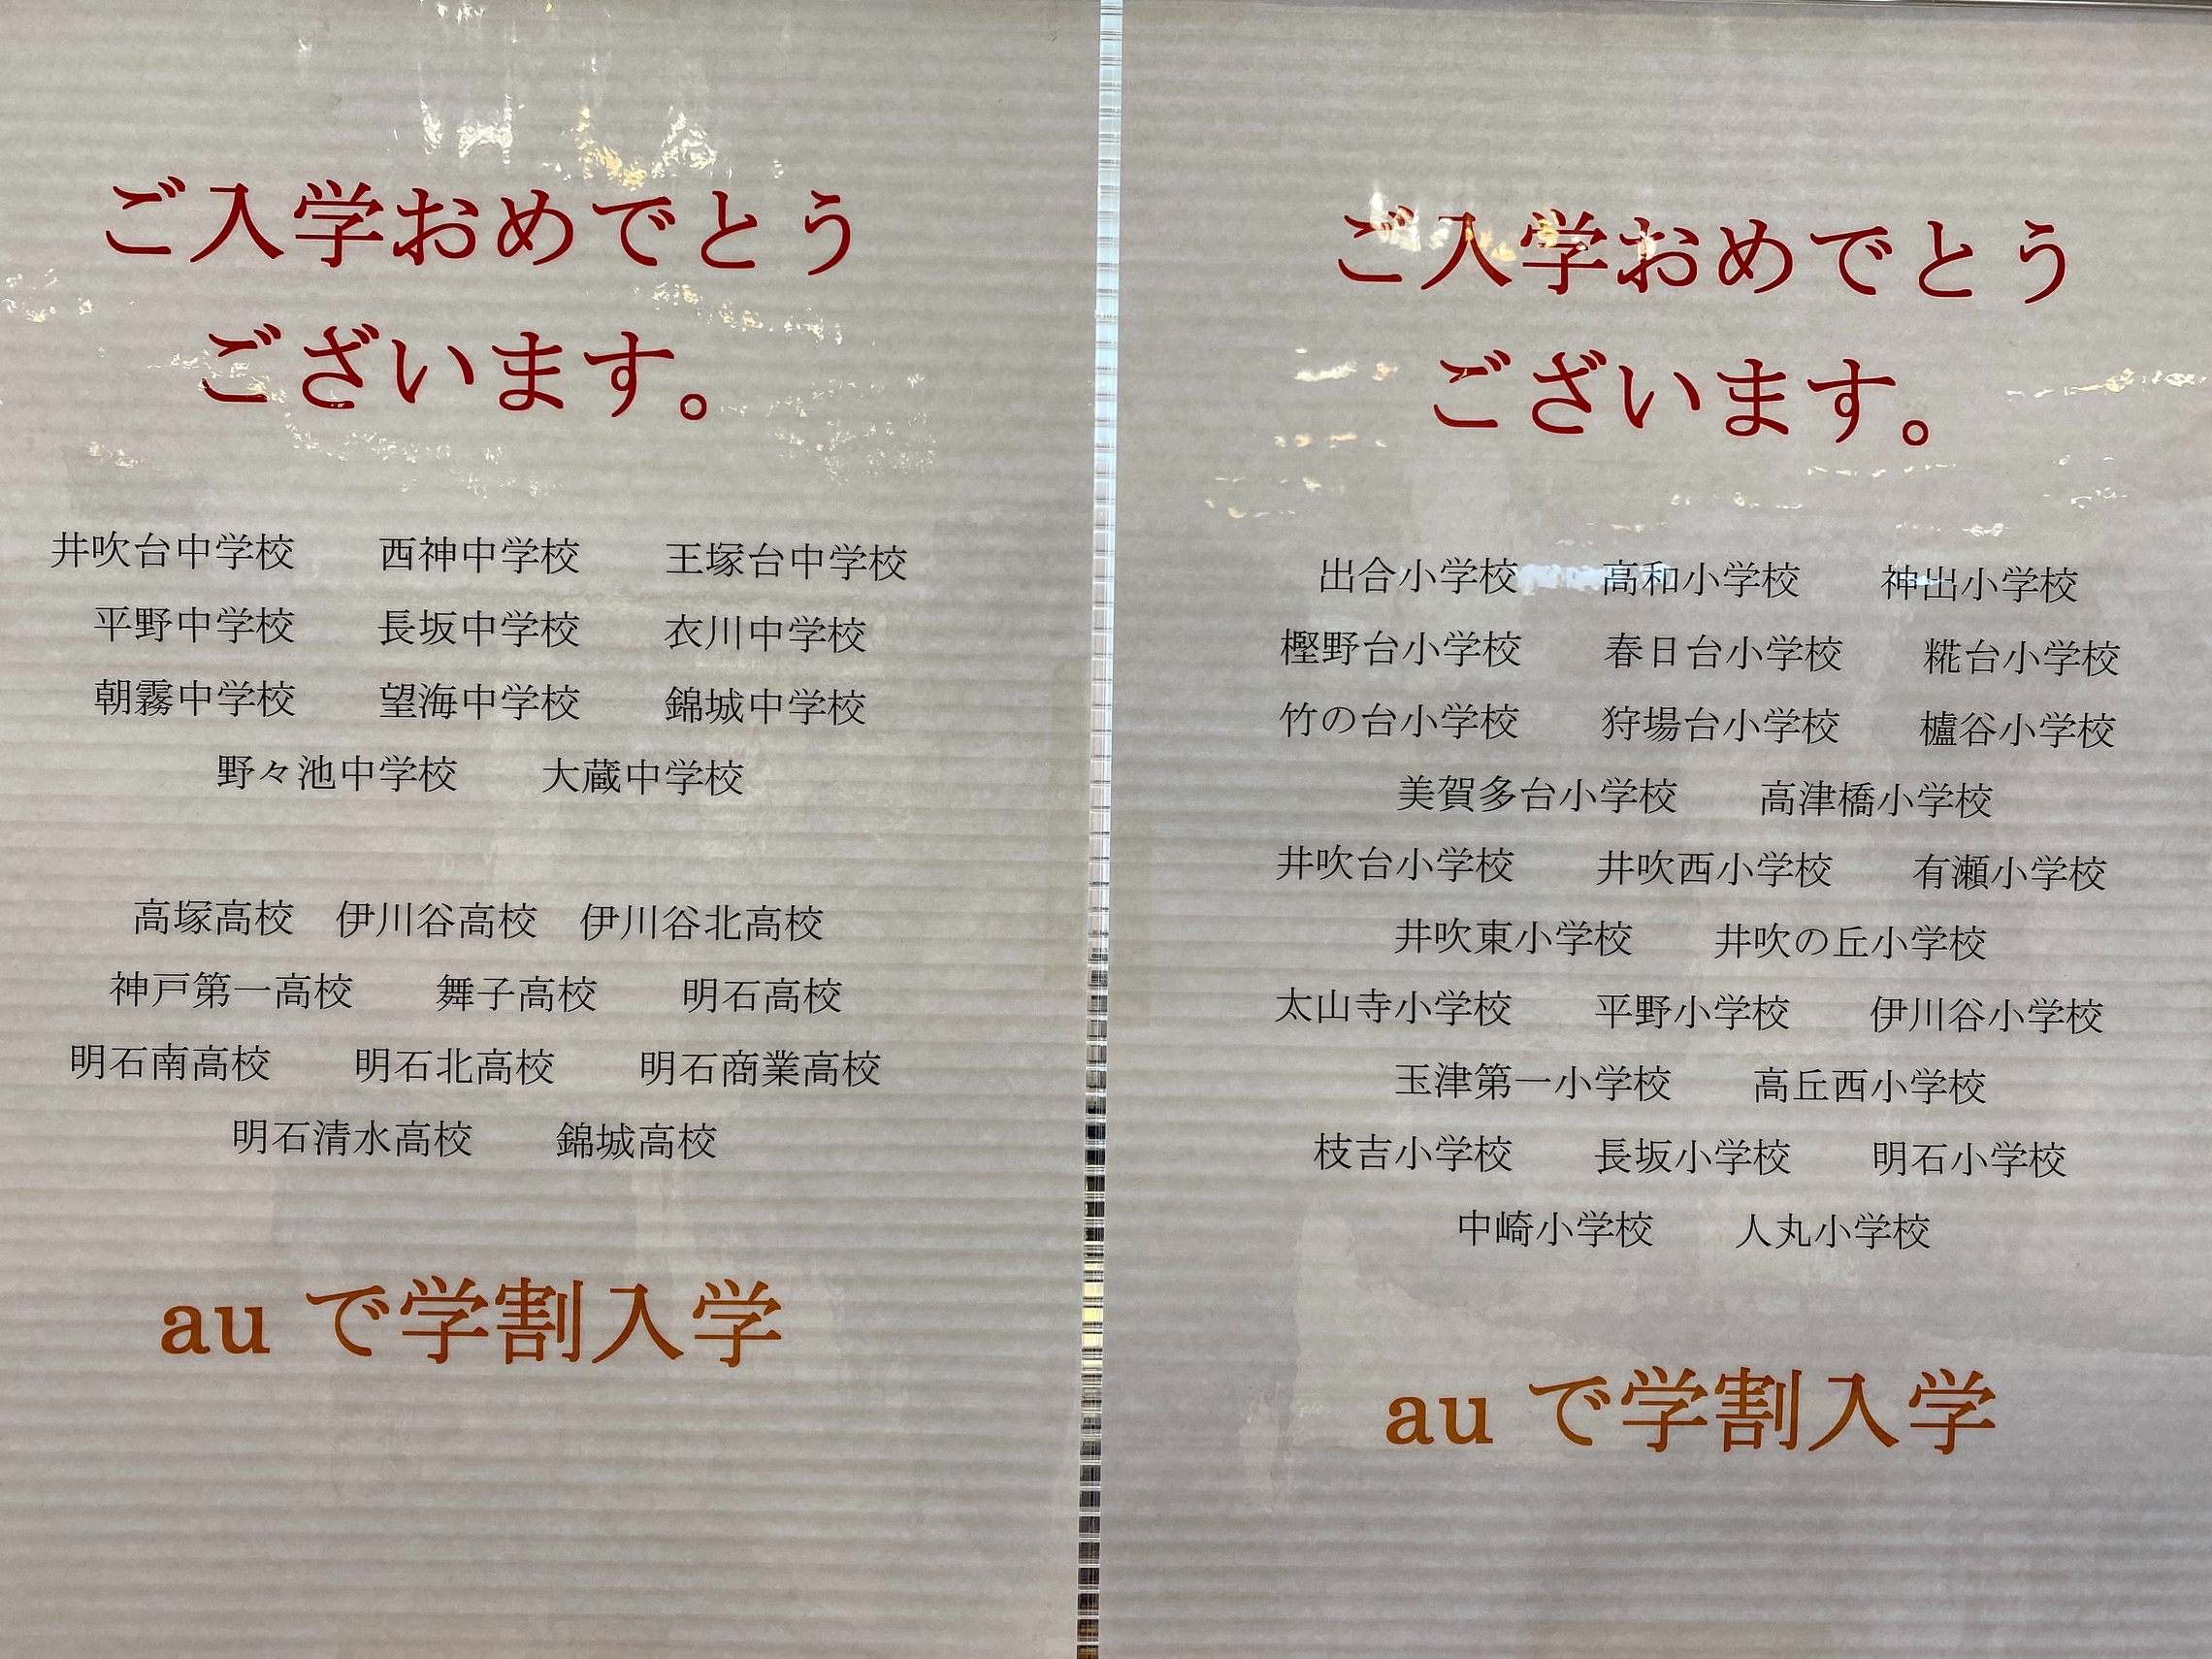 ご入学おめでとう
ございます。
井吹台中学校 西神中学校 王塚台中学校
平野中学校 長坂中学校 衣川中学校
朝霧中学校 望海中学校 錦城中学校
野々池中学校 大蔵中学校
高塚高校 伊川谷高校 伊川谷北高校
神戸第一高校 舞子高校 明石高校
明石南高校 明石北高校 明石商業高校
明石清水高校 錦城高校
au で学割入学
ご入学おめでとう
ございます。
出合小学校 高和小学校 神出小学校
樫野台小学校 春日台小学校 糀台小学校
竹の台小学校 狩場台小学校 櫨谷小学校
美賀多台小学校 高津橋小学校
井吹台小学校 井吹西小学校 有瀬小学校
井吹東小学校 井吹の丘小学校
太山寺小学校 平野小学校 伊川谷小学校
玉津第一小学校 高丘西小学校
枝吉小学校 長坂小学校 明石小学校
中崎小学校 人丸小学校
au で学割入学